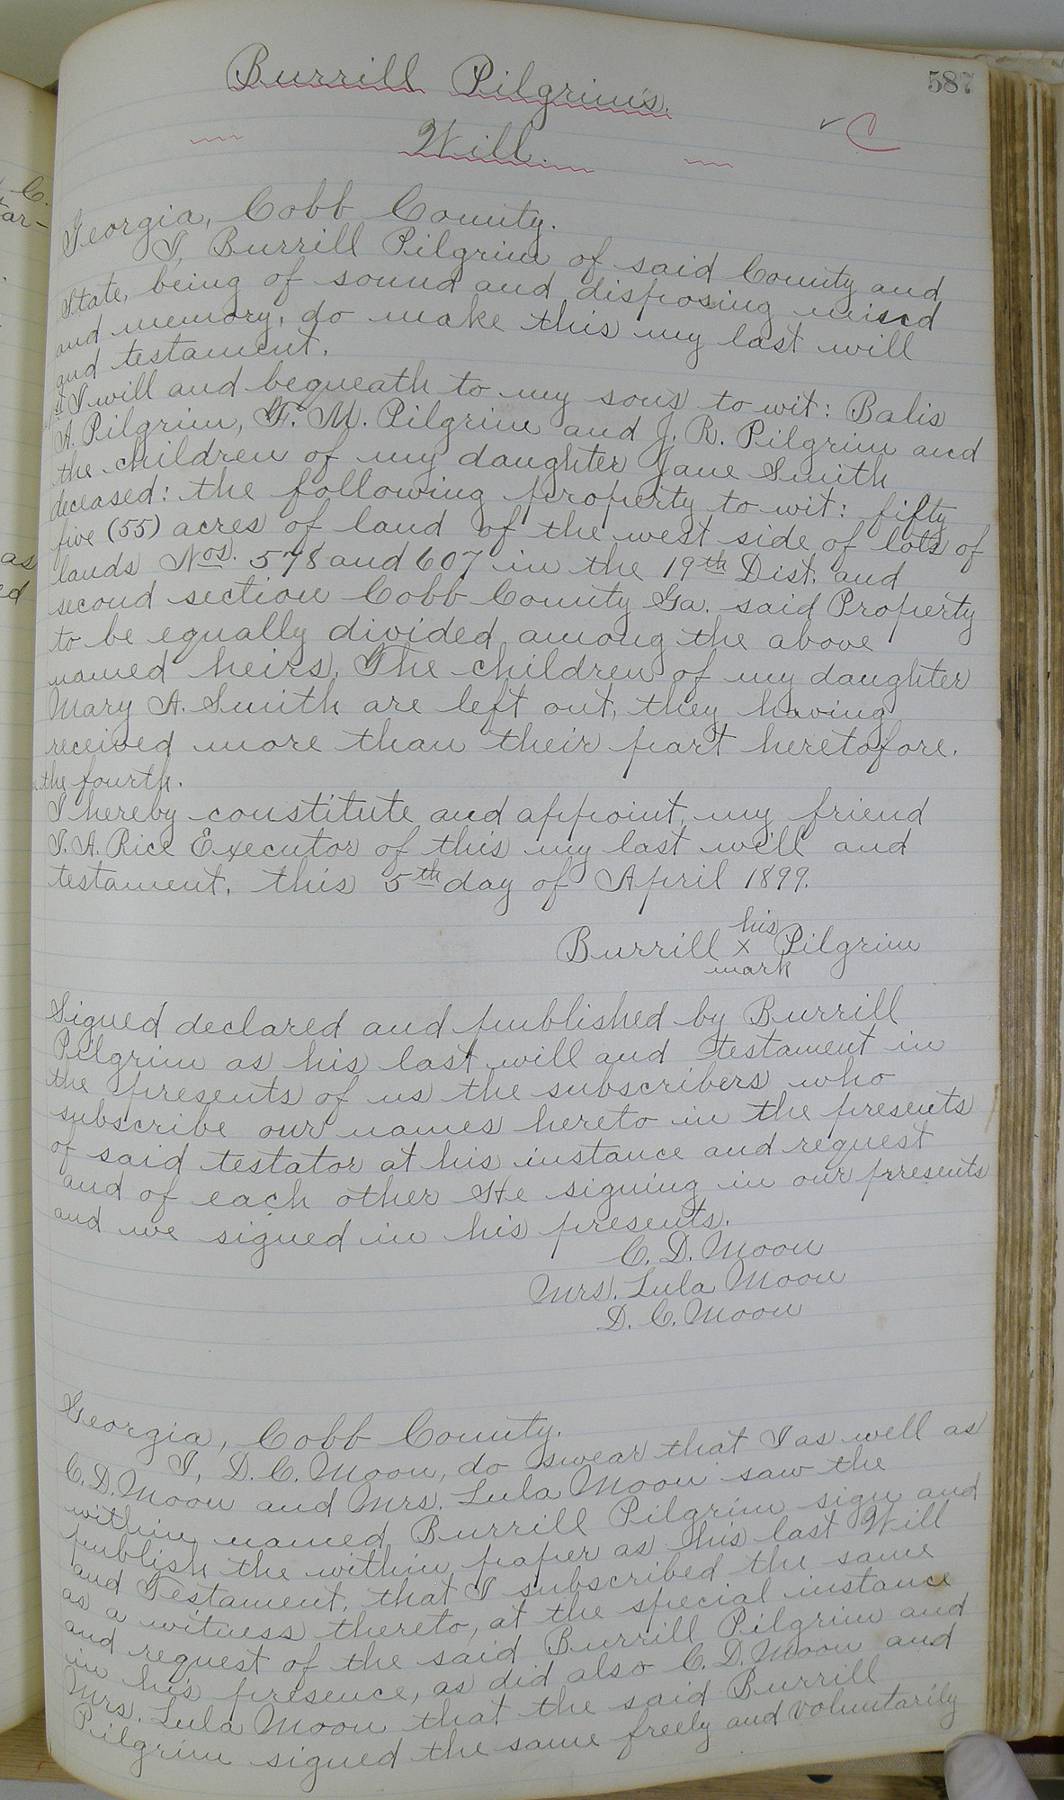 587
Burrill Pilgrim's
Will.
C
Georgia, Cobb County.
I, Burrill Pilgrim of said County and
State, being of sound and disposing mind
and memory, do make this my last will
and testament.
I will and bequeath to my sons to wit: Balis
A. Pilgrim, F. M. Pilgrim and J. R. Pilgrim and
the children of my daughter Jane Smith
deceased: the following property to wit: fifty
five (55) acres of land of the west side of lots of
lands Nos. 578 and 607 in the 19th Dist. and
second section Cobb County Ga. said Property
to be equally divided among the above
named heirs, The children of my daughter
Mary A. Smith are left out, they having
received more than their part heretofore.
the fourth.
I hereby constitute and appoint, my friend
T. A. Rice Executor of this my last will and
testament, this 5th day of April 1899.
his
Burrill x Pilgrim
mark
Signed declared and published by Burrill
Pilgrim as his last will and testament in
the presents of us the subscribers who
subscribe our names hereto in the presents
of said testator at his instance and request
and of each other He signing in our presents
and we signed in his presents.
C. D. Moon
Mrs. Lula Moon
D. C. Moon
Georgia, Cobb County.
I, D. C. Moon, do swear that I as well as
C. D. Moon and Mrs. Lula Moon saw the
within named Burrill Pilgrim sign and
publish the within paper as his last Will
and Testament, that I subscribed the same
as a witness thereto, at the special instance
and request of the said Burrill Pilgrim and
in his presence, as did also C. D. Moon and
Mrs. Lula Moon that the said Burrill
Pilgrim signed the same freely and voluntarily